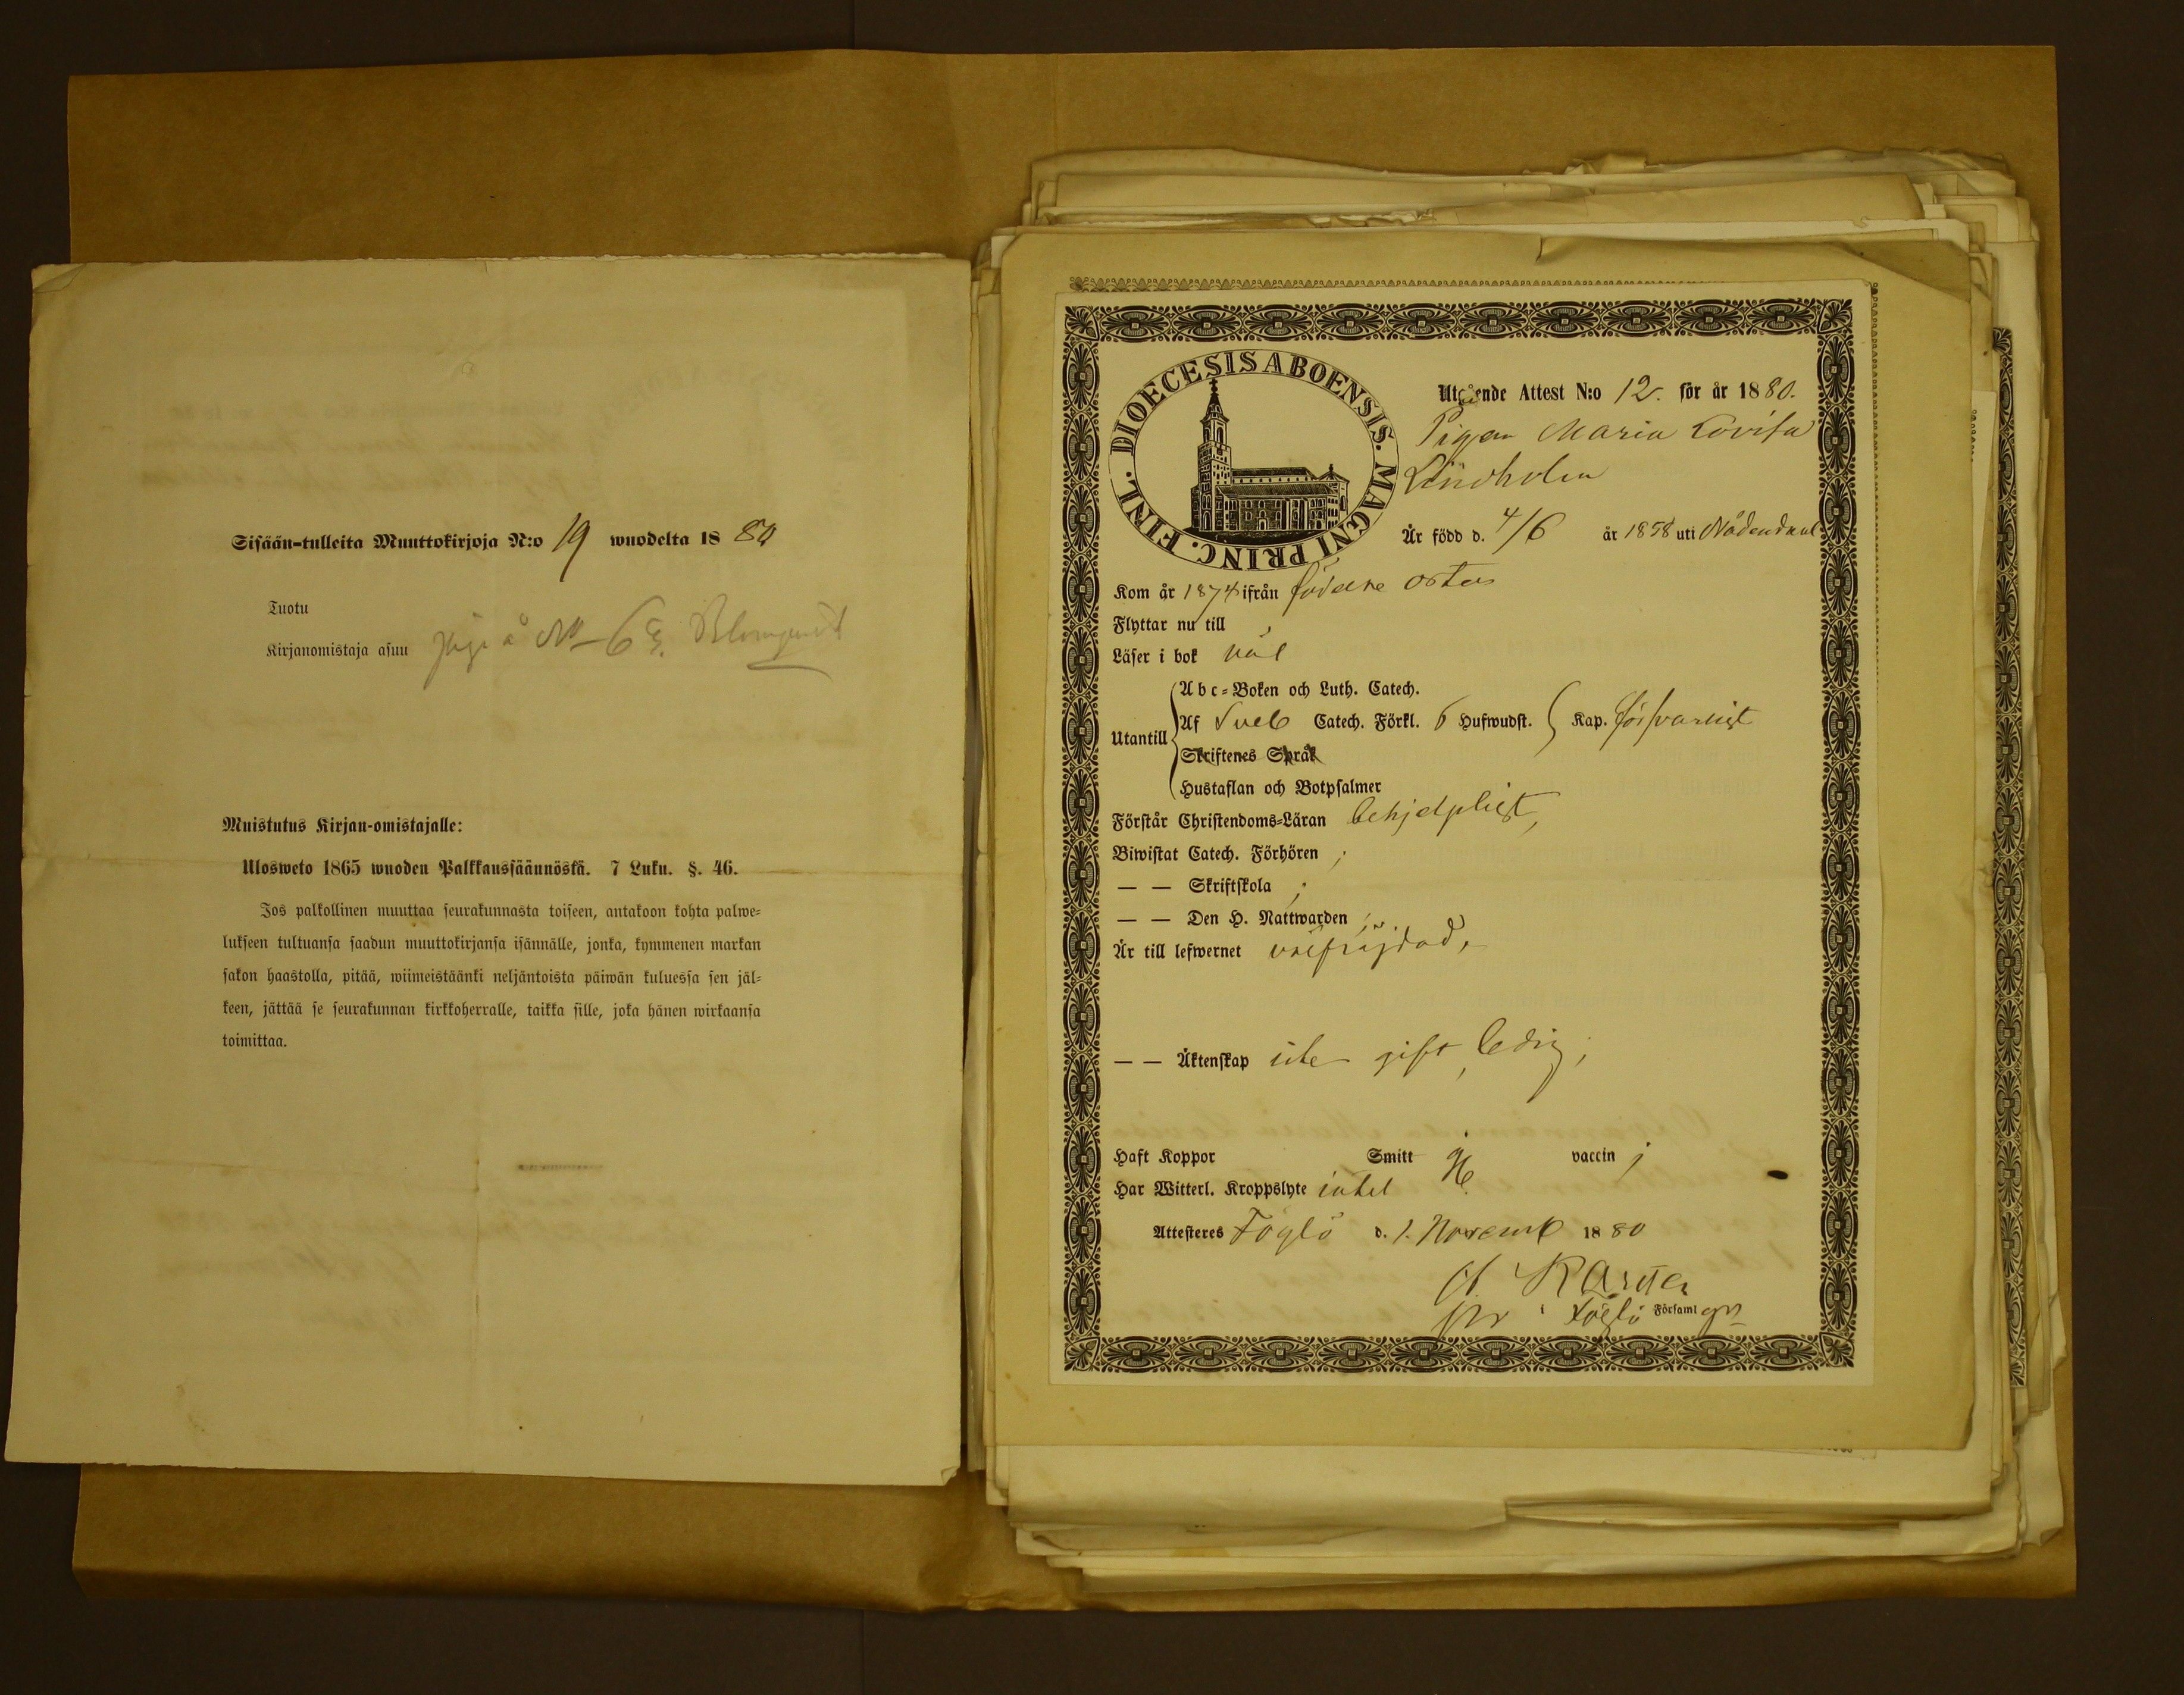 Sisään-tulleita Muuttokirjoja N:o 19 wuodelta 1880
Tuotu
Kirjanomistaja asuu Piga å No 6 E. Blomqvist
Muistutus Kirjan-omistajalle:
Ulosweto 1865 wuoden Palkkaussäännöskä. 7 Luku. §. 46.
Jos palkollinen muuttaa seurakunnasta toiseen, antakoon kohta palwe-
lukseen tultuansa saadun muuttokirjansa isännälle, jonka, kymmenen markan
sakon haastolla, pitää, wiimeistäänki neljäntoista päiwän kuluessa sen jäl-
keen, jättää se seurakunnan kirkkoherralle, taikka sille, joka hänen wirkaansa
toimittaa.
DIOECESIS ABOENSIS. MAGNI PRINC. FINL.
Utgående Attest N:o 12. för år 1880.
Pigan Maria Lovisa
Lindholm
Är född d. 4/6 år 1858 uti Nådendaal
Kom år 1874 ifrån födelse orten
Flyttar nu till
Läser i bok väl
Utantill
Abc-Boken och Luth. Catech.
Af Sveb Catech. Förkl. 6 Hufwudst. Kap. försvarligt
Skriftenes Språk
Hustaflan och Botpsalmer
Förstår Christendoms-Läran behjelpligt,
Biwistat Catech. Förhören ;
— — Skriftskola ;
— — Den H. Nattwarden ;
Är till lefwernet välfrejdad,
— — Äktenskap icke gift, ledig;
Haft Koppor Smitt vaccin j
Har Witterl. Kroppslyte intet
Attesteres Föglö d. 1. Novemb 1880
Karsten
i Föglö Församl gn